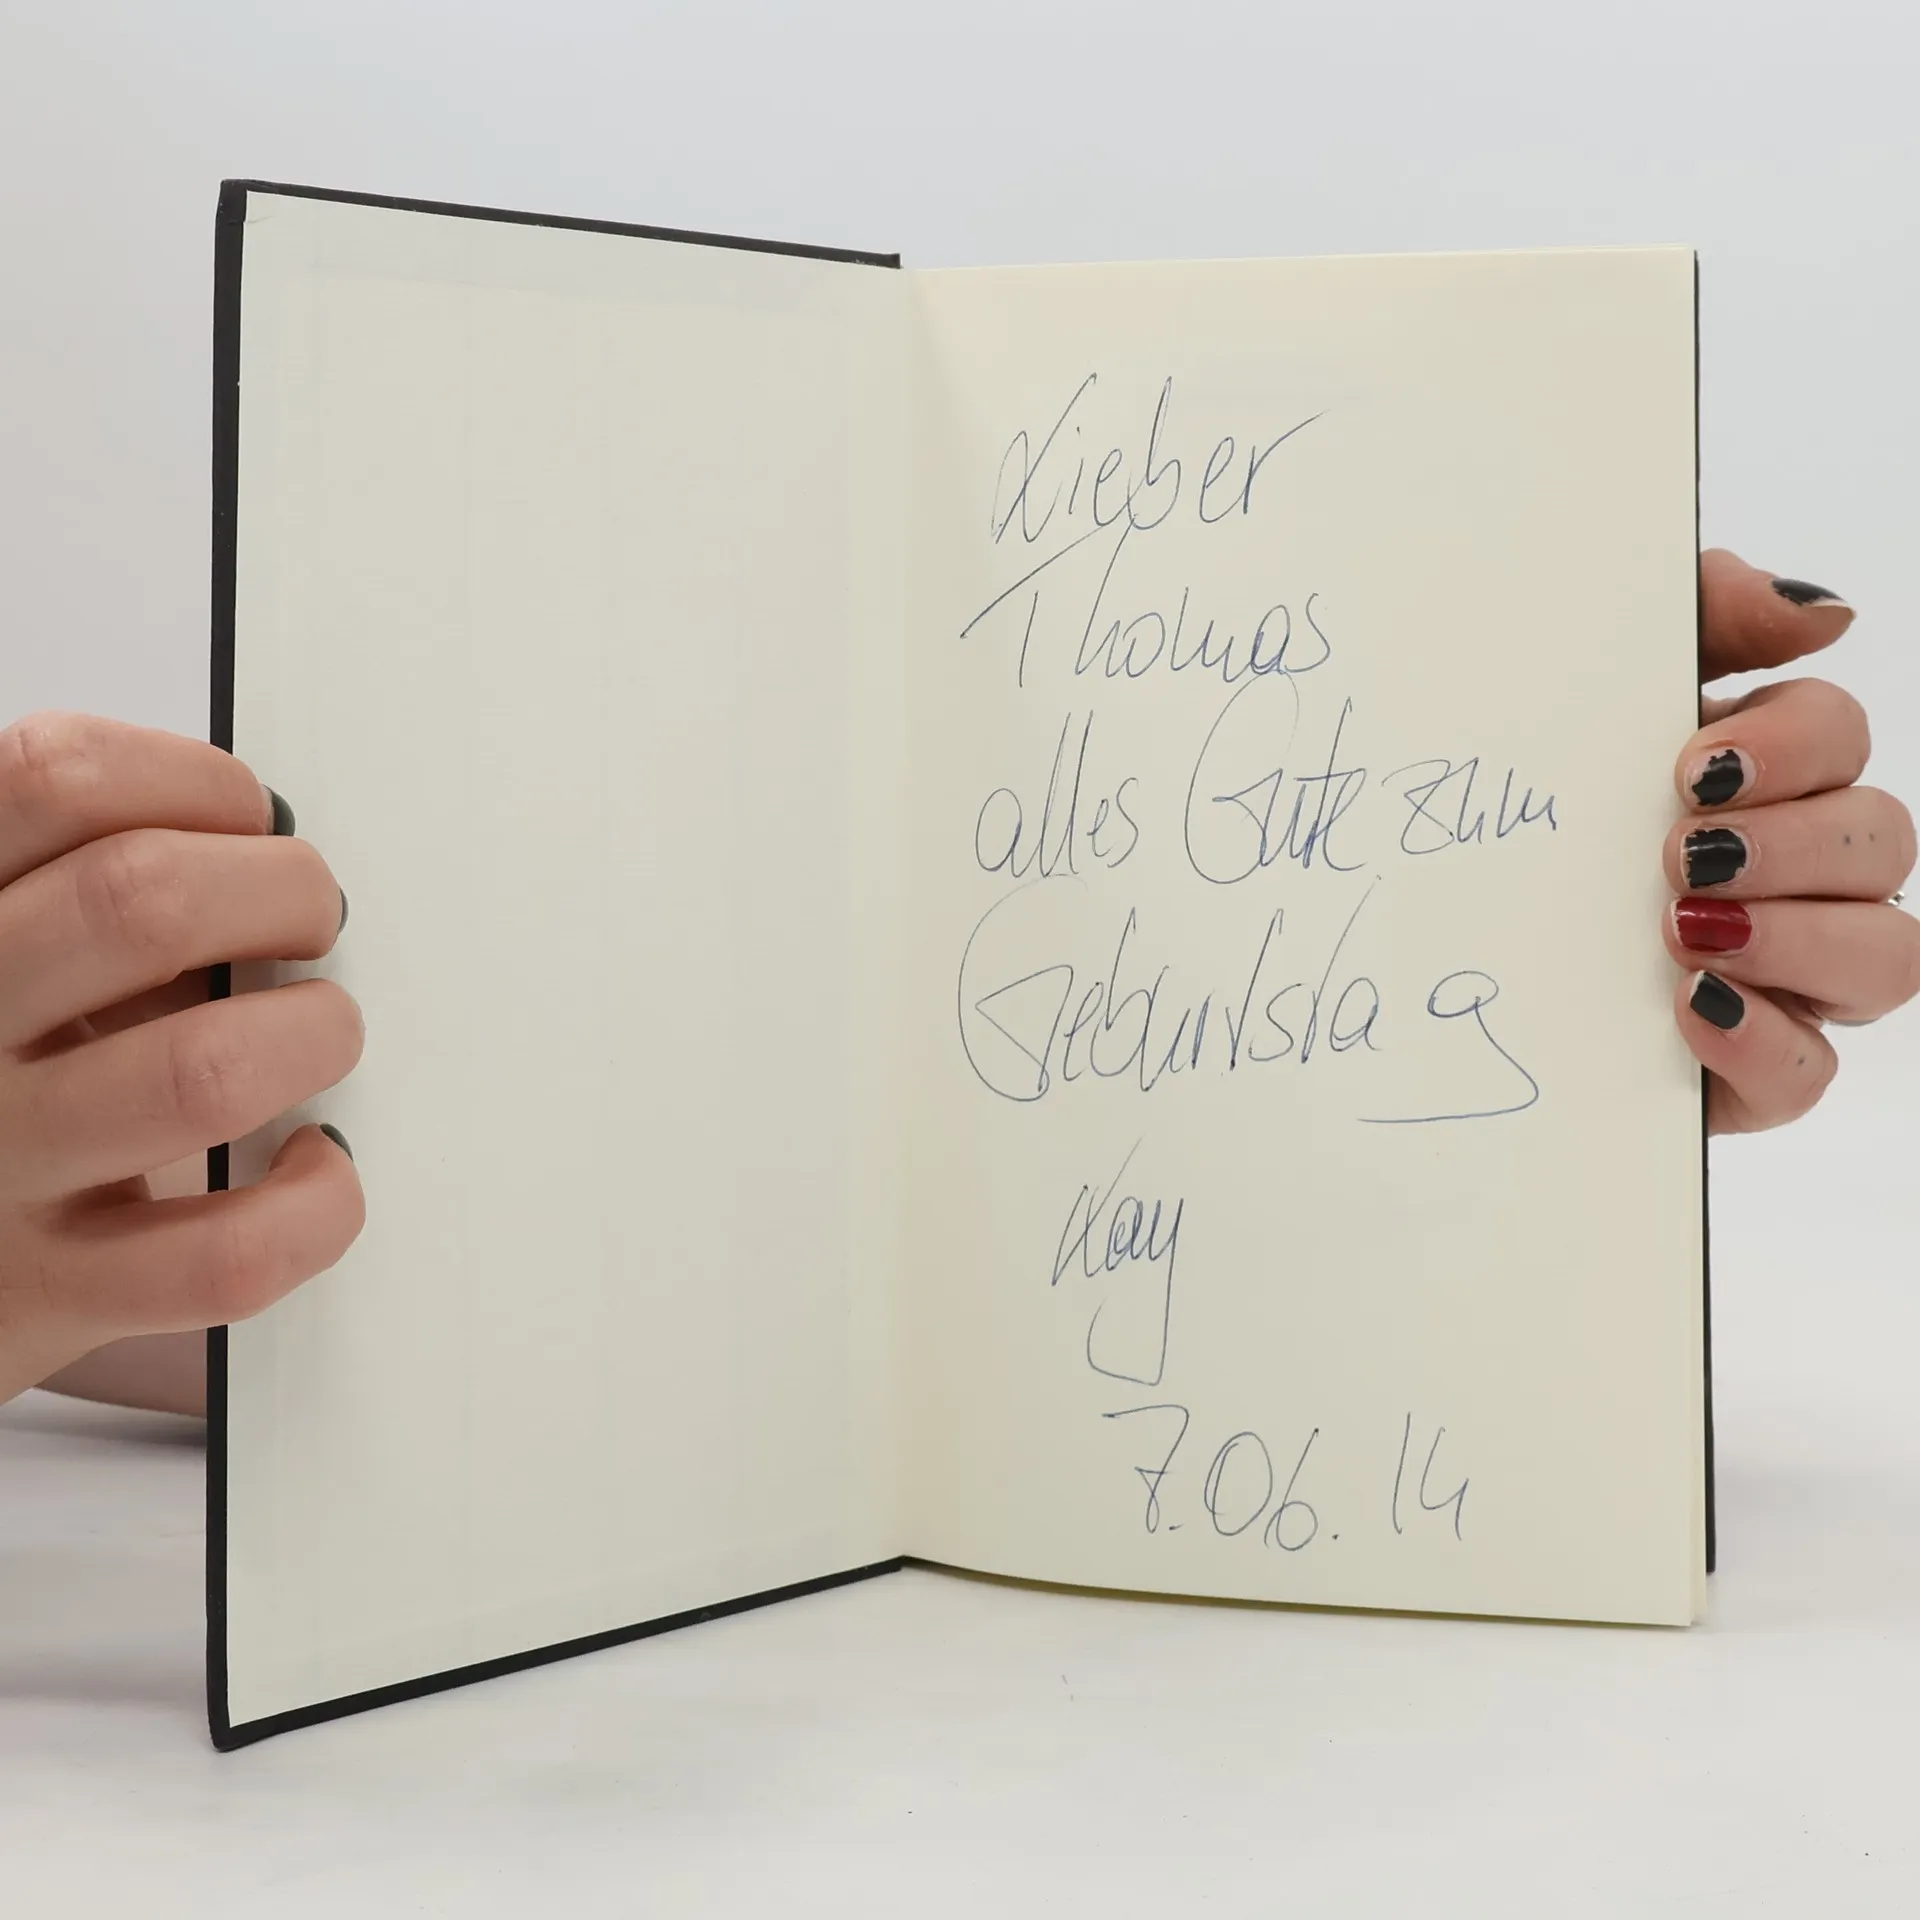 Lieber
Thomas
alles Gute zum
Geburtstag
Kay
7.06.14